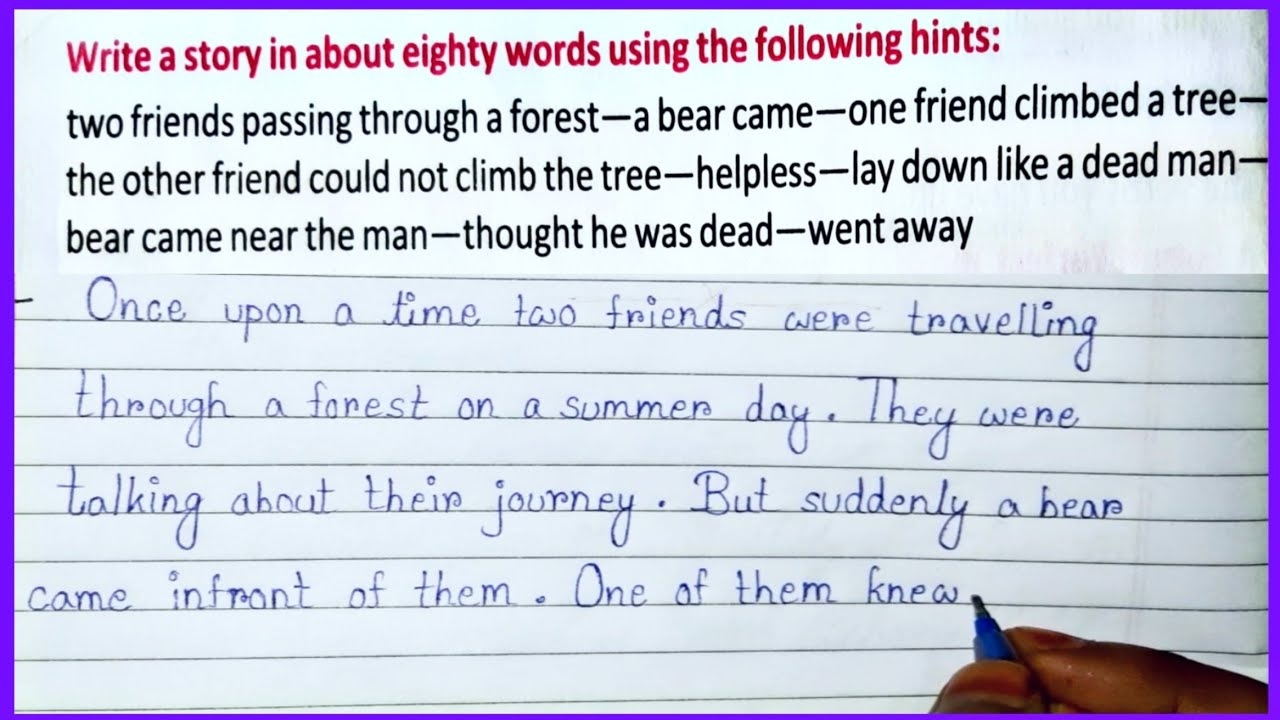 Write a story in about eighty words using the following hints:
two friends passing through a forest—a bear came—one friend climbed a tree—
the other friend could not climb the tree—helpless—lay down like a dead man—
bear came near the man—thought he was dead—went away
Once upon a time two friends were travelling
through a forest on a summer day. They were
talking about their journey. But suddenly a bear
came infront of them. One of them knew